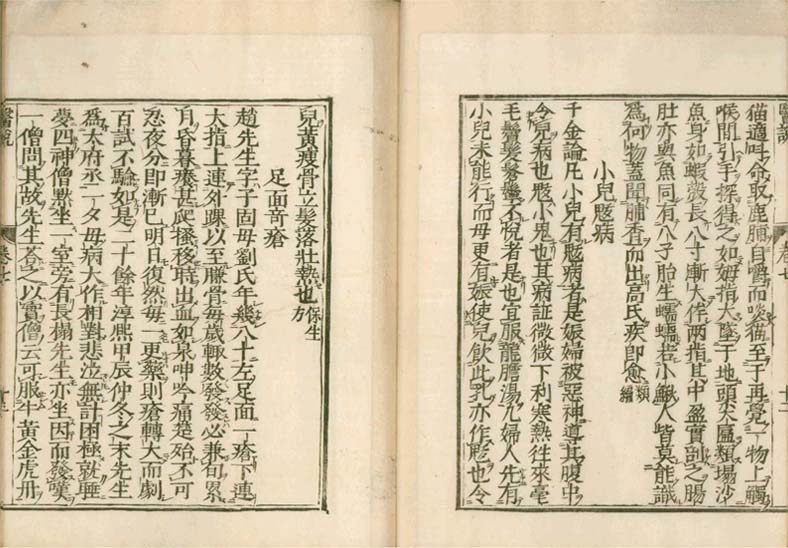 醫說
卷七
猫適叫命取鹿脯自嚼而啖猫至于再覺一物上觸
喉間引手探得之如姆指大墜于地頭尖匾類塌沙
魚身如蝦殼長八寸漸大侔兩指其中盈實剖之腸
肚亦與魚同有八子胎生蠕蠕若小鰍人皆莫能識
爲何物蓋聞脯香而出高氏疾即愈類編
小兒鬾病
千金論凡小兒有鬾病者是娠婦被惡神導其腹中
令兒病也鬾小鬼也其病証微微下利寒熱往來毫
毛鬢髮鬡鬡不悅者是也宜服龍膽湯凡婦人先有
小兒未能行而母更有娠使兒飲此乳亦作鬾也令
兒黃瘦骨立髮落壯熱也保生方
足面竒瘡
趙先生字子固母劉氏年幾八十左足面一瘡下連
大指上連外踝以至臁骨每歲輒數發發必兼旬累
月昏暮痒甚爬搔移時出血如泉呻吟痛楚殆不可
忍夜分即漸已明日復然每一更藥則瘡轉大而劇
百試不驗如是二十餘年淳熙甲辰仲冬之末先生
爲太府丞一夕母病大作相對悲泣無計困極就睡
夢四神僧默坐一室旁有長榻先生亦坐因而發嘆
一僧問其故先生荅之以實僧云可服牛黃金虎丹
醫說
卷七